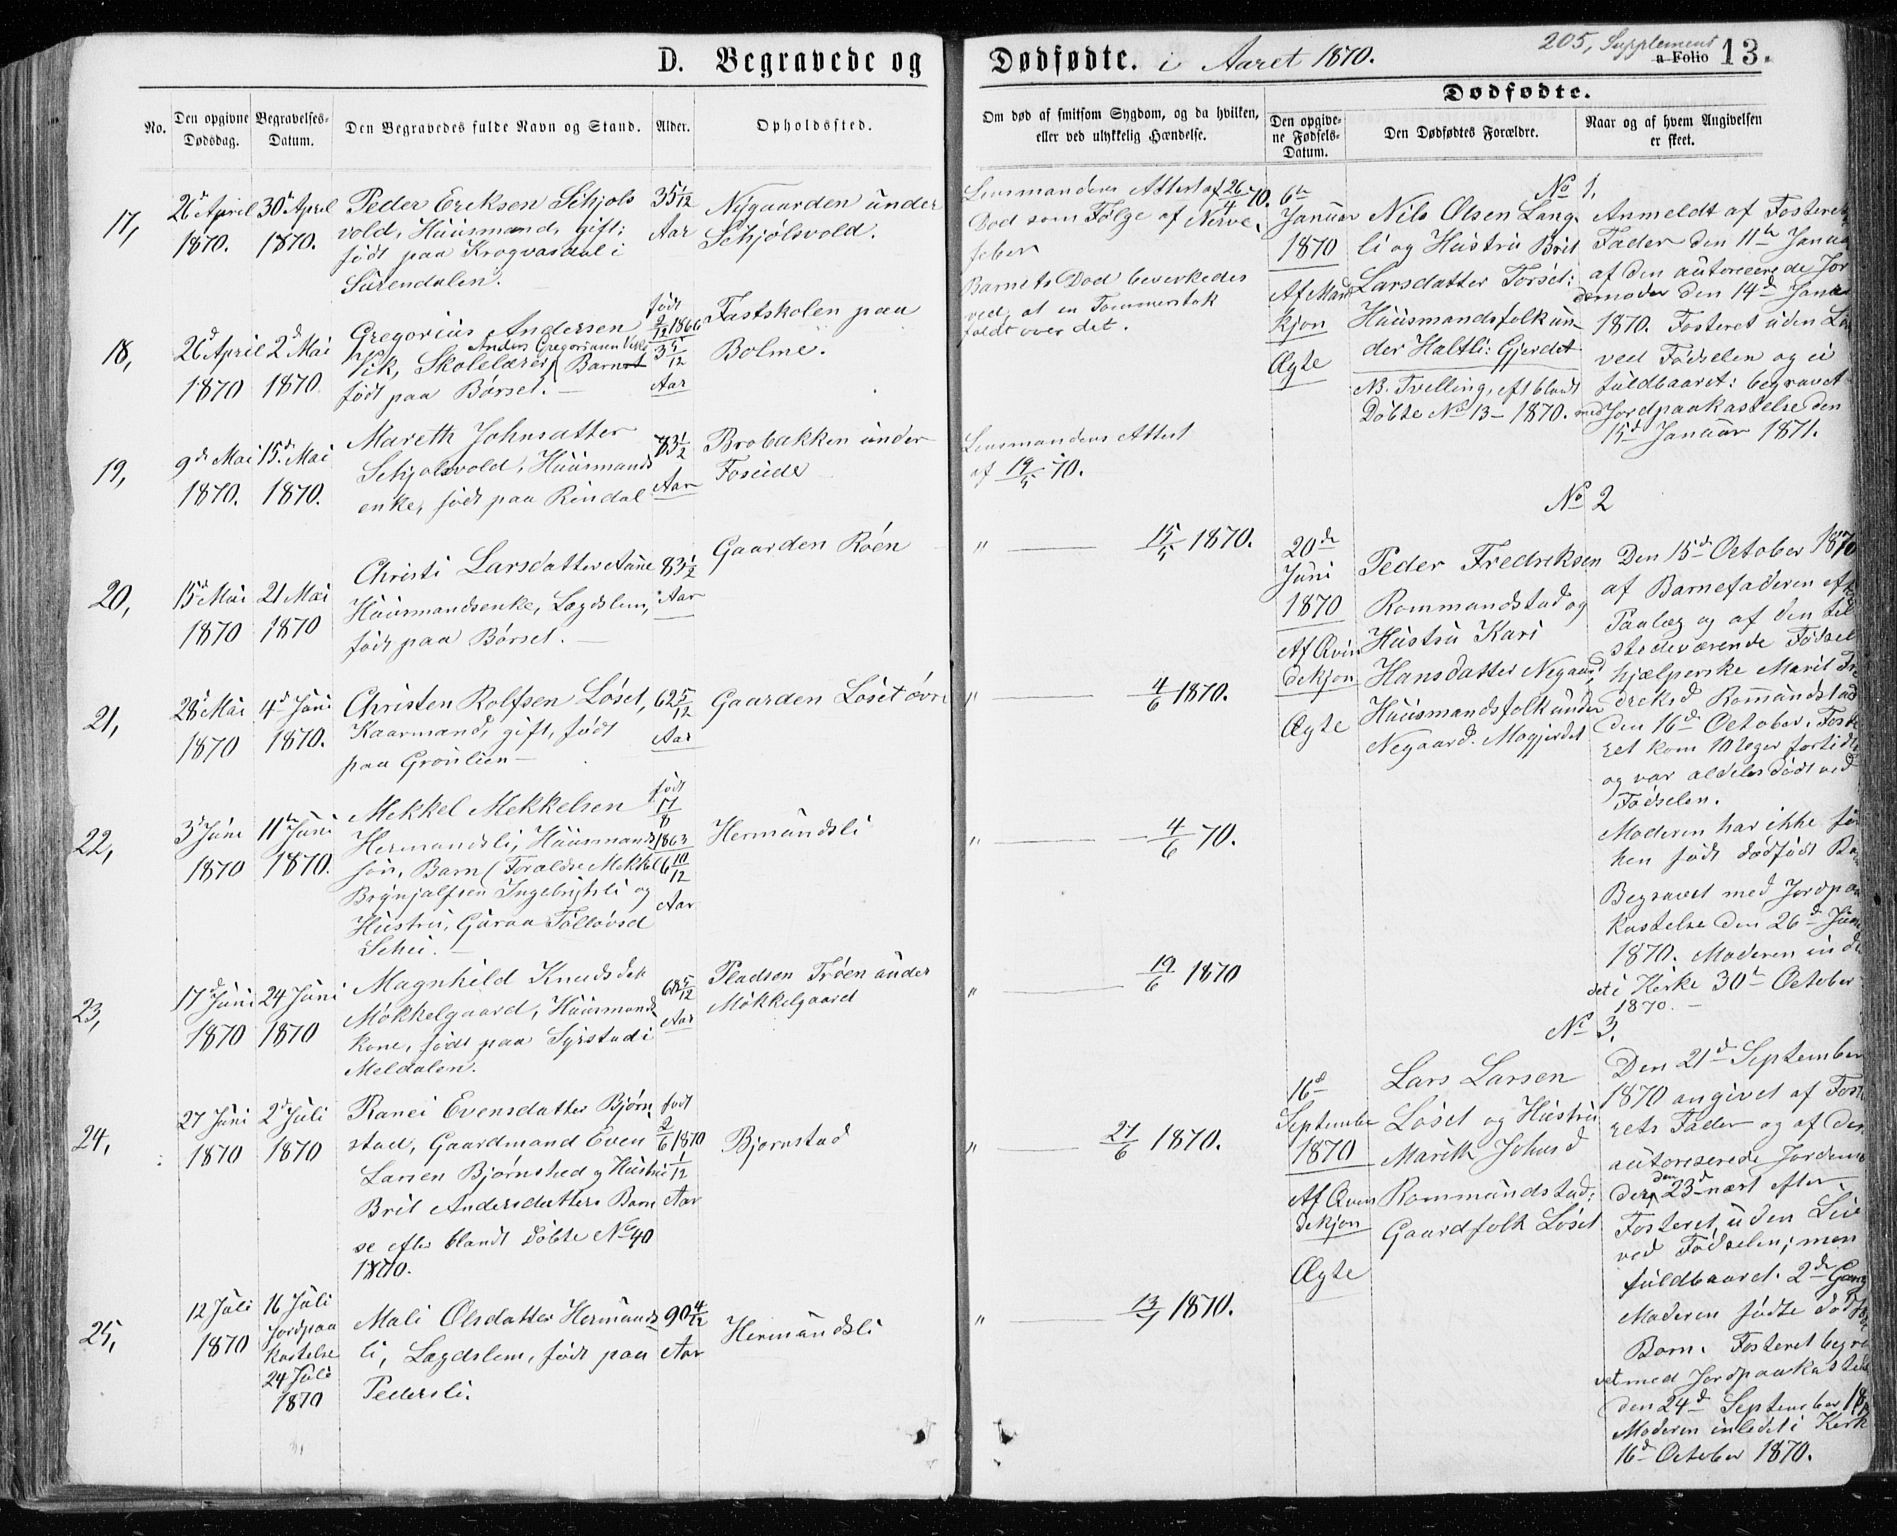 D. Begravede og Dødfødte. i Aaret 1870.
205, Supplement
a Folio 13.
No.
Den opgivne Dødsdag.
Begravelses-Datum.
Den Begravedes fulde Navn og Stand.
Alder.
Opholdssted.
Om død af smitsom Sygdom, og da hvilken,
eller ved ulykkelig Hændelse.
Dødfødte.
Den opgivne Fødsels-Datum.
Den Dødfødtes Forældre.
Naar og af hvem Angivelsen
er skeet.
17,
26d April
1870.
30d April
1870.
Peder Eriksen Schjols
vold, Huusmand, gift;
født paa Krogvasdal i
Surendalen.
35 5/12
Aar
Nygaarden under
Schjølsvold.
Lensmandens Attest af 26/4 70.
Død som Følge af Nerve
feber
18,
26d April
1870
2d Mai
1870.
Gregorius Andersen
Anders Gregoriussen Vik
Vik, Skolelærer Barn
født paa Børset.
født
1866
3 5/12
Aar
Fastskolen paa
Bolme.
Barnets Død bevirkedes
ved, at en Tømmerstok
faldt over det.
19,
9d Mai
1870.
15d Mai
1870.
Mareth Johnsatter
Schjolsvold, Huusmands
enke, født paa Rindal
83 1/2
Aar
Brobakken under
Foseide
Lensmandens Attest
af 19/5 70.
20,
15d Mai
1870
21 Mai
1870
Christi Larsdatter Aune
Huusmandsenke, Lægdslem,
født paa Børset.
83 1/2
Aar
Gaarden Røen
" 15/5 1870.
21,
28d Mai
1870
4d Juni
1870.
Christen Rolfsen Løset,
Kaarmand, gift, født
paa Grønlien
62 5/12
Aar
Gaarden Løset øvre
" 4/6 1870.
22,
3d Juni
1870
11te Juni
1870.
Mekkel Mekkelsen
Hermandsli, Huusmands
søn, Barn (Forældre Mekkel
Brynjalfsen Ingebrigtsli og
Hustru, Guraa Tølløvsd
Schei.
født
17
1863
6 10/12
Aar
Hermundsli
" 4/6 70.
23,
17d Juni
1870
24 Juni
1870
Magnhild Knudsdat
Møkkelgaard, Huusmands
kone, født paa Syrstad i
Meldalen.
5/12
Aar
Pladsen Trøen under
Møkkelgaard
" 19/6 1870
24,
27 Juni
1870
2d Juli
1870
Ranei Evensdatter Bjørn
stad, Gaardmand Even
Larsen Bjørnstad og Hustru
Brit Andersdatters Barn
se efter blandt Døbte No 40
1870.
født
2/6 1870
1/12
Aar
Bjørnstad
" 27/6 1870.
25,
12 Juli
1870
16 Juli
Jordpaa
kastelse
24 Juli
1870
Mali Olsdatter Hermunds
li, Lægdslem, født paa
Pedersli.
90 4/12
Aar
Hermundsli
" 13/7 1870.
No 1.
6te
Januar
1870
Af Mand
kjøn
Ægte
Nils Olsen Lang
li og Hustru Brit
Larsdatter Torset:
Huusmandsfolk un
der Haltli: Gjerdet
NB. Tvelling, eft blandt
Døbte No 13 - 1870.
Anmeldt af Fosterets
Fader den 11te Janua
af den autoriserede Jor
demoder den 14d Janua
1870. Fosteret uden Liv
ved Fødselen og ei
fuldbaaret: begravet
med Jordpaakastelse den
15d Januar 1871.
No 2
20de
Juni
1870
Af Qvin
dekjøn
Ægte
Peder Fredriksen
Rommundstad og
Hustru Kari
Hansdatter Negaard
Huusmandsfolk under
Negaard. Mogjerdet
Den 15d October 1870
af Barnefaderen efter
Paalæg og af den til
stedeværende Fødsel
hjælperske Marit Fre
driksd Rommundstad
den 16d October. Foste
ret kom 10 Uger fortidli
og var aldeles dødt ved
Fødselen.
Moderen har ikke før
hen født dødfødt Ba
Begravet med Jordpaa
kastelse den 26d Juni
1870. Moderen indle
det i Kirke 30te October
1870.
No 3.
16d
September
1870
Af Qvin
dekjøn
Ægte
Lars Larsen
Løset og Hustru
Marith Johnsd
Rommundstad;
Gaardfolk Løset
Den 21d September
1870 angivet af Foste
rets Fader og af den
autoriserede Jordemo
der, den 23d næst efter
Fosteret uden Liv
ved Fødselen; men
fuldbaaret. 2den Gang
Moderen fødte dødfødt
Barn. Fosteret begra
vet med Jordpaakastelse
den 24d September 1870
Moderen inledet i Kirk
16d October 1870.